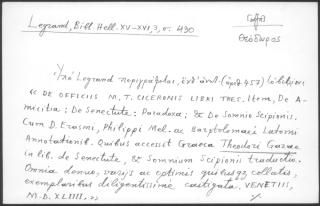 Legrand, Bibl. Hell. XV-XVI, 3, σ. 430
Γαζῆς
Θεόδωρος
Ὑπὸ Legrand περιγράφεται, ἐνθ' ἀνωτ. (ἀριθ. 457)
« DE OFFICIIS M. T. CICERONIS LIBRI TRES. Item, De A-
micitia: De Senectute: Paradoxa: & De Somnio Scipionis.
Cum D. Erasmi, Philippi Mel. ac Bartolomæi Latomi
Annotationib. Quibus accessit Graeca Theodori Gazae
in lib. de Senectute, & Somnium Scipionis traductio.
Omnia denuo, varijs ac optimis quibusqz collatis,
exemplaribus diligentissime castigata. VENETIIS,
M.D.XLIIII.»